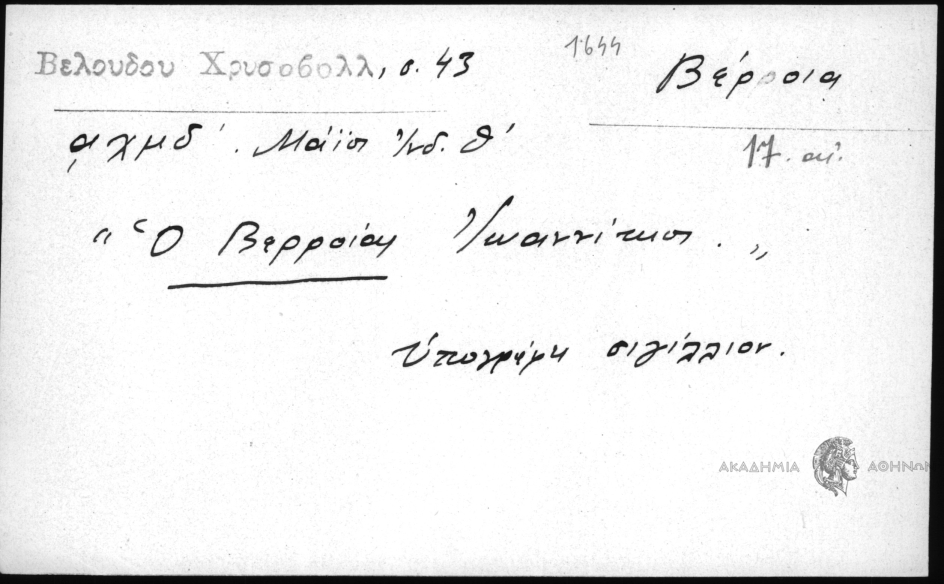 Βελουδου Χρυσοβολλ, σ. 43
1644
Βέρροια
͵αχμδ΄. Μαΐῳ Ἰνδ. θ΄
17. αἰ.
"Ὁ Βερροίας Ἰωαννίκιος."
Ὑπογράφει σιγίλλιον.
ΑΚΑΔΗΜΙΑ ΑΘΗΝΩΝ